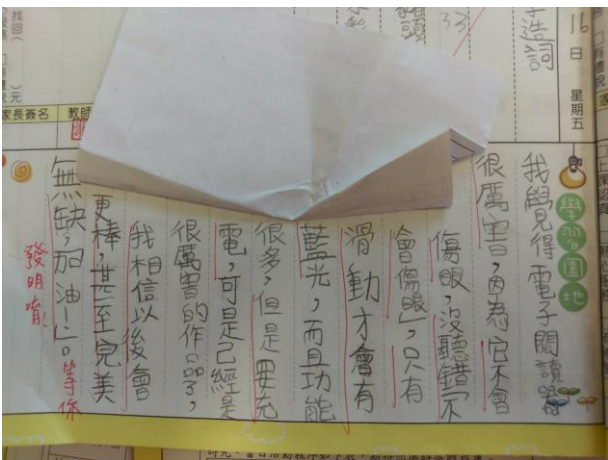 16日 星期五
造詞
33
學習園地
我覺得電子閱讀器
很厲害，因為它不會
傷眼，沒聽錯「不
會傷眼」，只有
滑動才會有
藍光，而且功能
很多，但是要充
電，可是已經是
很厲害的作品了，
我相信以後會
更棒，甚至完美
無缺，加油！」。等你
發明唷
家長簽名
教師
元